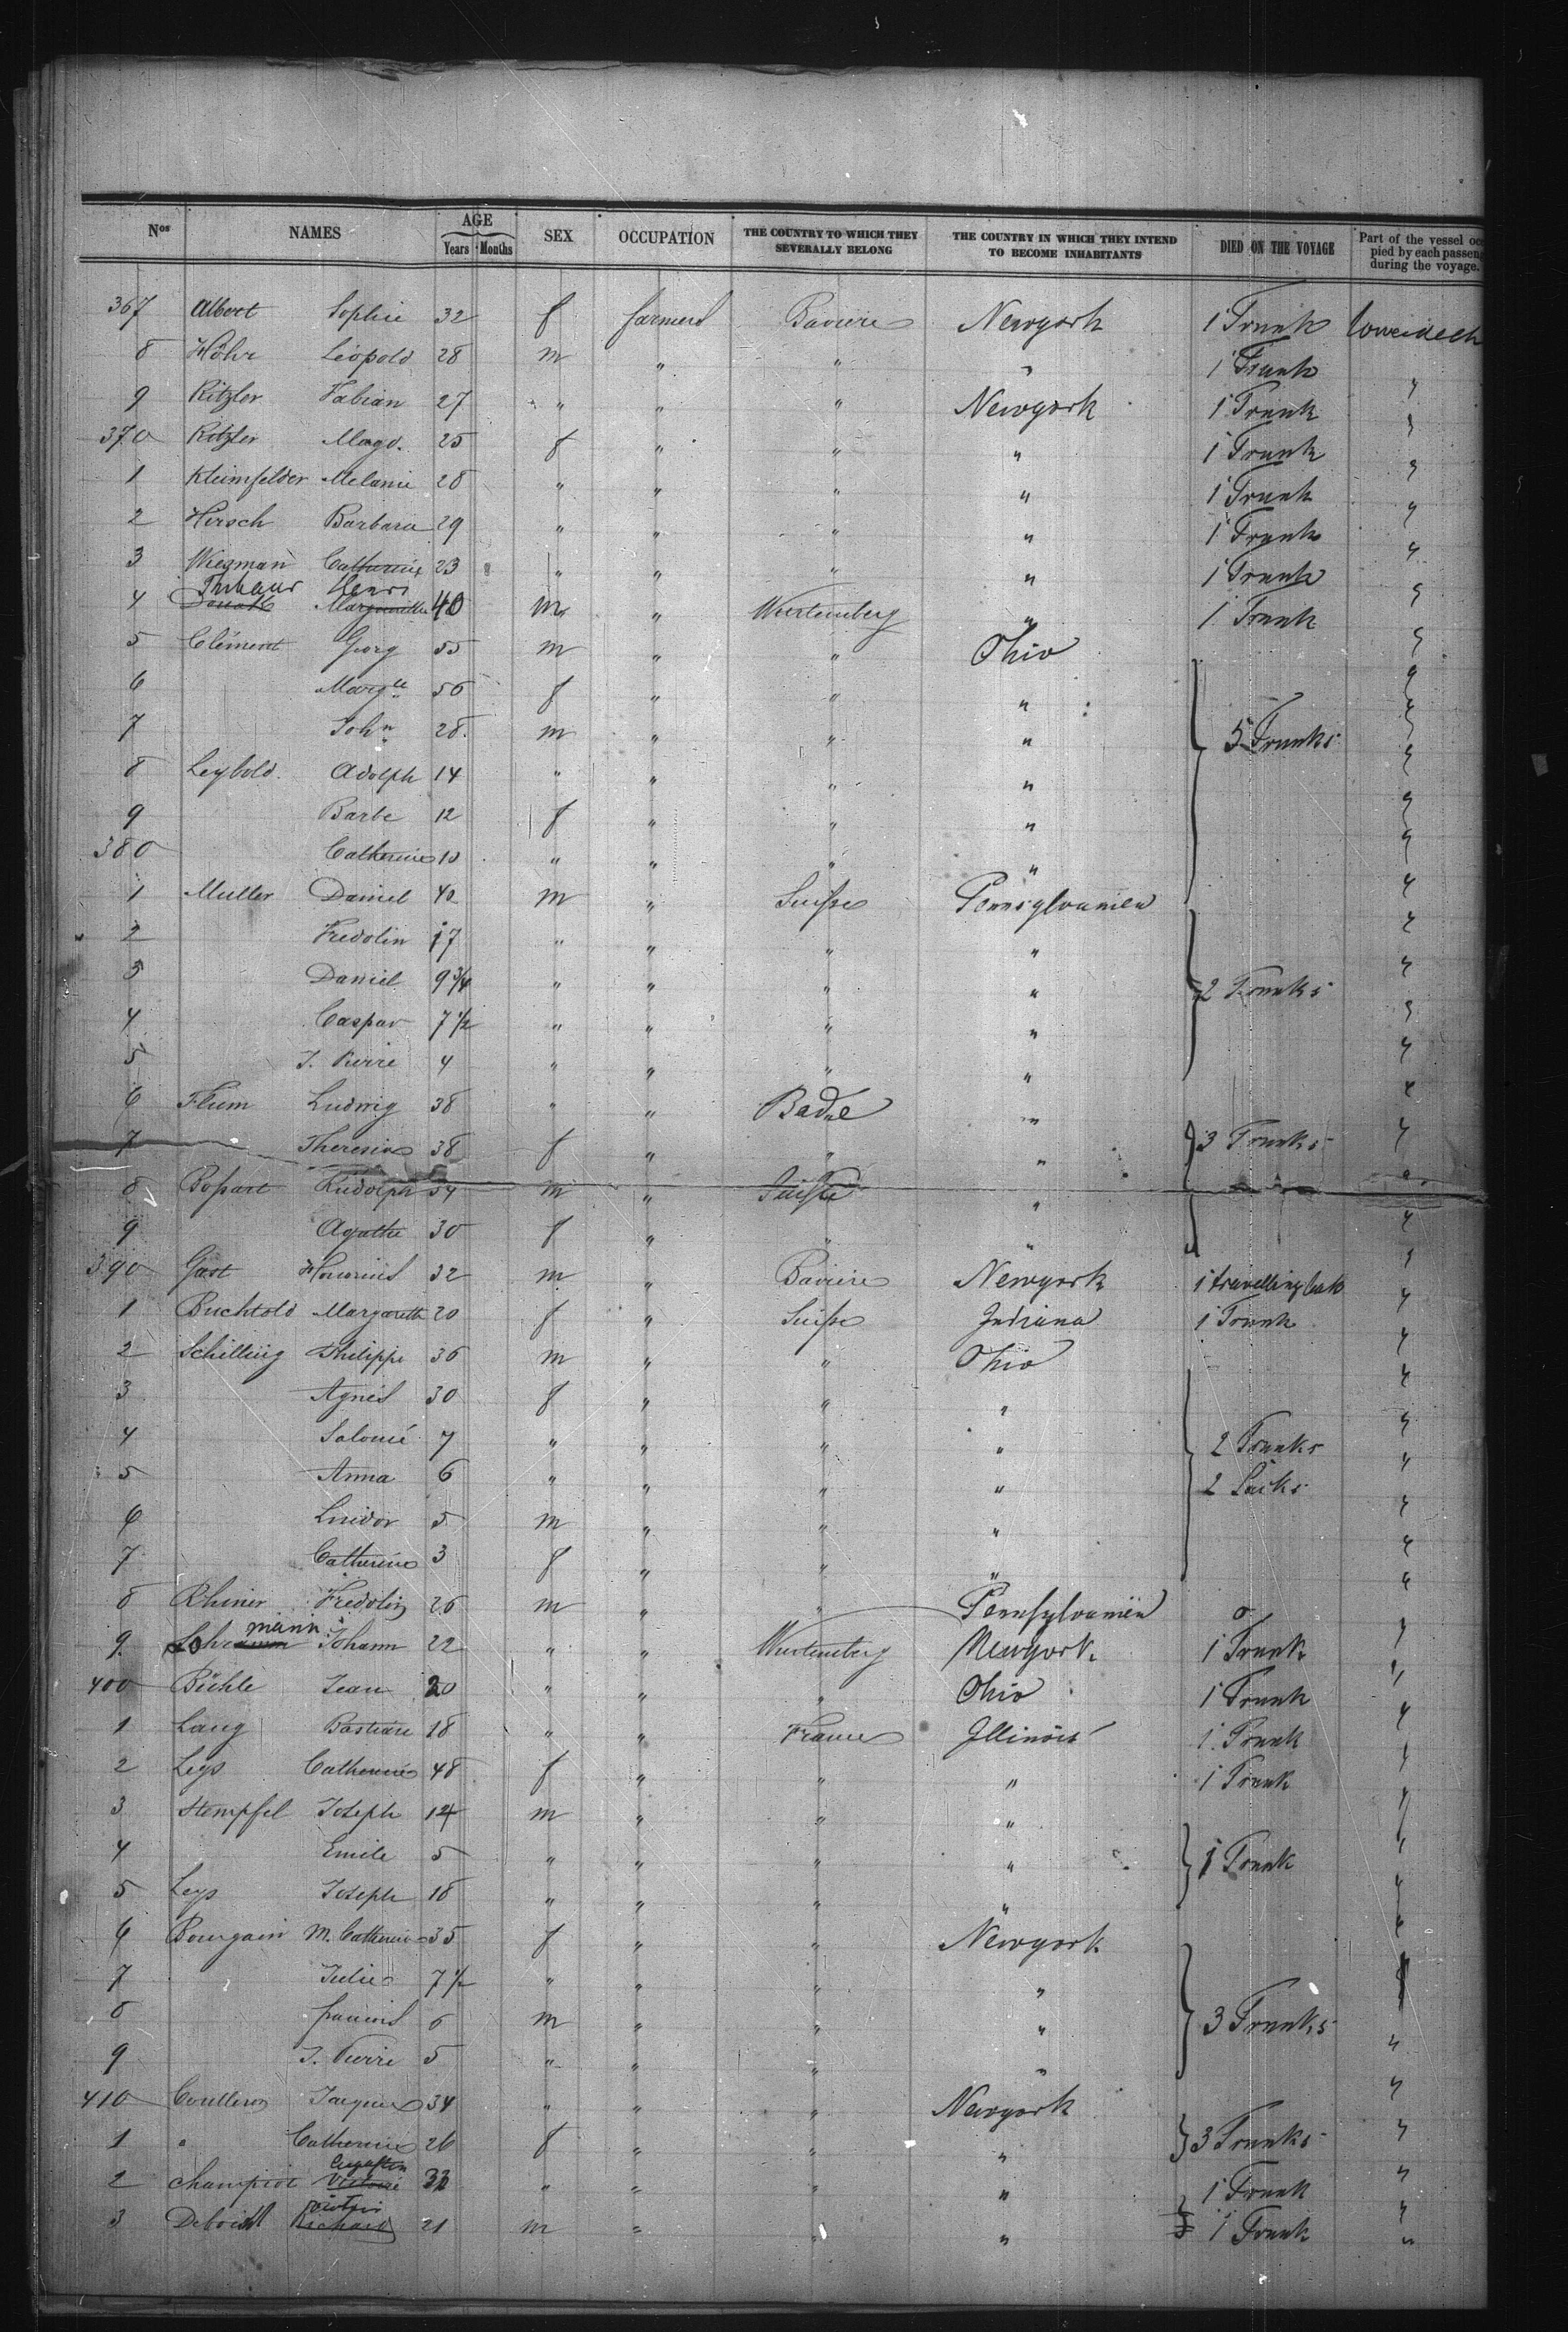 Nos NAMES AGE Years Months SEX OCCUPATION THE COUNTRY TO WHICH THEY SEVERALLY BELONG THE COUNTRY IN WHICH THEY INTEND TO BECOME INHABITANTS DIED ON THE VOYAGE Part of the vessel oc pied by each passen during the voyage.
367 Albert Sophie 32 f farmers Baviere Newyork 1 Trunk
8 Höhr Léopold 28 m " " " 1 Trunk "
9 Ritzler Fabian 27 " " " Newyork 1 Trunk "
370 Ritzler Magd. 25 f " " " 1 Trunk "
1 Kleimfelder Melanie 28 " " " " 1 Trunk "
2 Hirsch Barbara 29 " " " " 1 Trunk "
3 Wiegman Catherine 23 " " " " 1 Trunk "
4 Thibaur Henri 40 m " Wurtemberg " 1 Trunk "
5 Clément Georg 55 m " " Ohio "
6 Margte 56 f " " " "
7 John 28. m " " " 5 Trunks "
8 Leybold Adolph 14 " " " " "
9 Barbe 12 f " " " "
380 Catherine 10 " " " " "
1 Muller Daniel 42 m " Suisse Pennsylvanien "
2 Fredolin 17 " " " " "
3 Daniel 9 3/4 " " " " 2 Trunks "
4 Caspar 7 1/2 " " " " "
5 J. Pierre 4 " " " " "
6 Flum Ludwig 38 " " Bade " "
7 Theresia 38 f " " " 3 Trunks "
8 Bossart Rudolph 54 m " Suisse " "
9 Agathe 30 f " " " "
390 Gast Honorius 32 m " Baviere Newyork 1 travelling "
1 Buchtold Margareth 20 f " Suisse Indiana 1 Trunk "
2 Schilling Philippe 36 m " " Ohio "
3 Agnes 30 f " " " "
4 Salomé 7 " " " " 2 Trunks "
5 Anna 6 " " " " 2 Sacks "
6 5 m " " " "
7 Catherine 3 f " " " "
8 Rhiner Fredolin 26 m " " Pennsylvanien o "
9 mann Johann 22 " " Wurtemberg Newyork. 1 Trunk "
400 Bühle Jean 20 " " " Ohio 1 Trunk "
1 Lang Bastiare 18 " " France Illinois 1 Trunk "
2 Leys Catherine 48 f " " " 1 Trunk "
3 Stempfel Joseph 14 m " " " "
4 Emile 5 " " " " 1 Trunk "
5 Leys Joseph 18 " " " " "
6 Bourgain M. Catherine 35 f " " Newyork "
7 Julie 7 1/2 " " " " "
8 francois 6 m " " " 3 Trunks "
9 J. Pierre 5 " " " " "
410 Coulleron Jacques 34 " " " Newyork "
1 " Catherine 26 f " " " 3 Trunks "
2 Champiot Augustin Victoire " " " " 1 Trunk "
3 Richard 21 m " " " 1 Trunk "